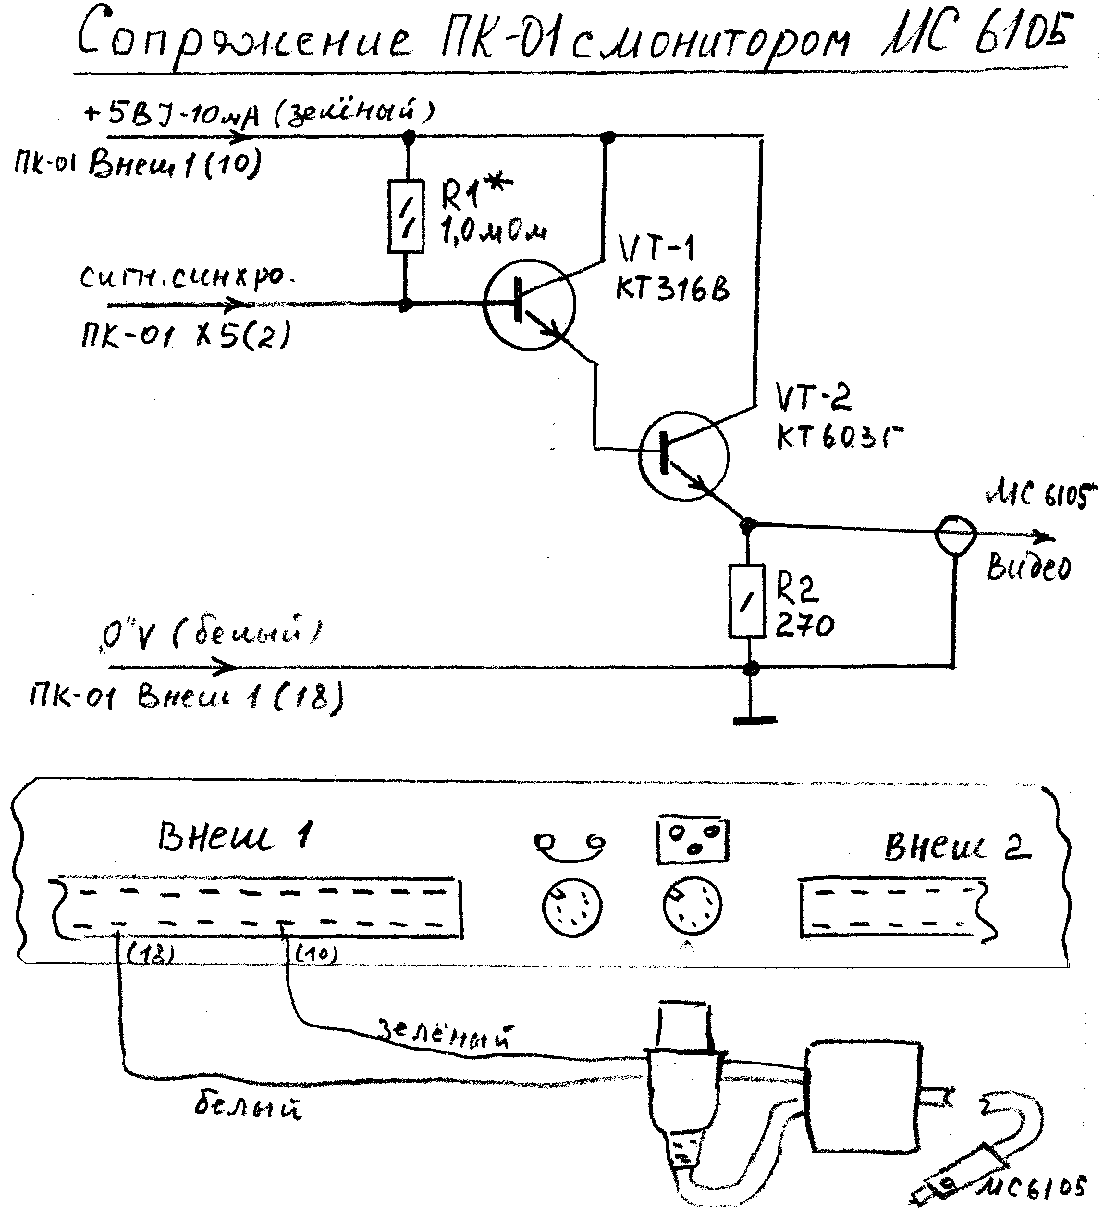 Сопряжение ПК-01 с монитором МС 6105
+5В I-10мА (зелёный)
ПК-01 Внеш 1 (10)
R1*
1,0 мОм
VT-1
КТ316В
сигн. синхро.
ПК-01 X5(2)
VT-2
КТ603Г
МС 6105
Видео
R2
270
„0"V (белый)
ПК-01 Внеш 1 (18)
Внеш 1
Внеш 2
(18)
(10)
зелёный
белый
МС6105